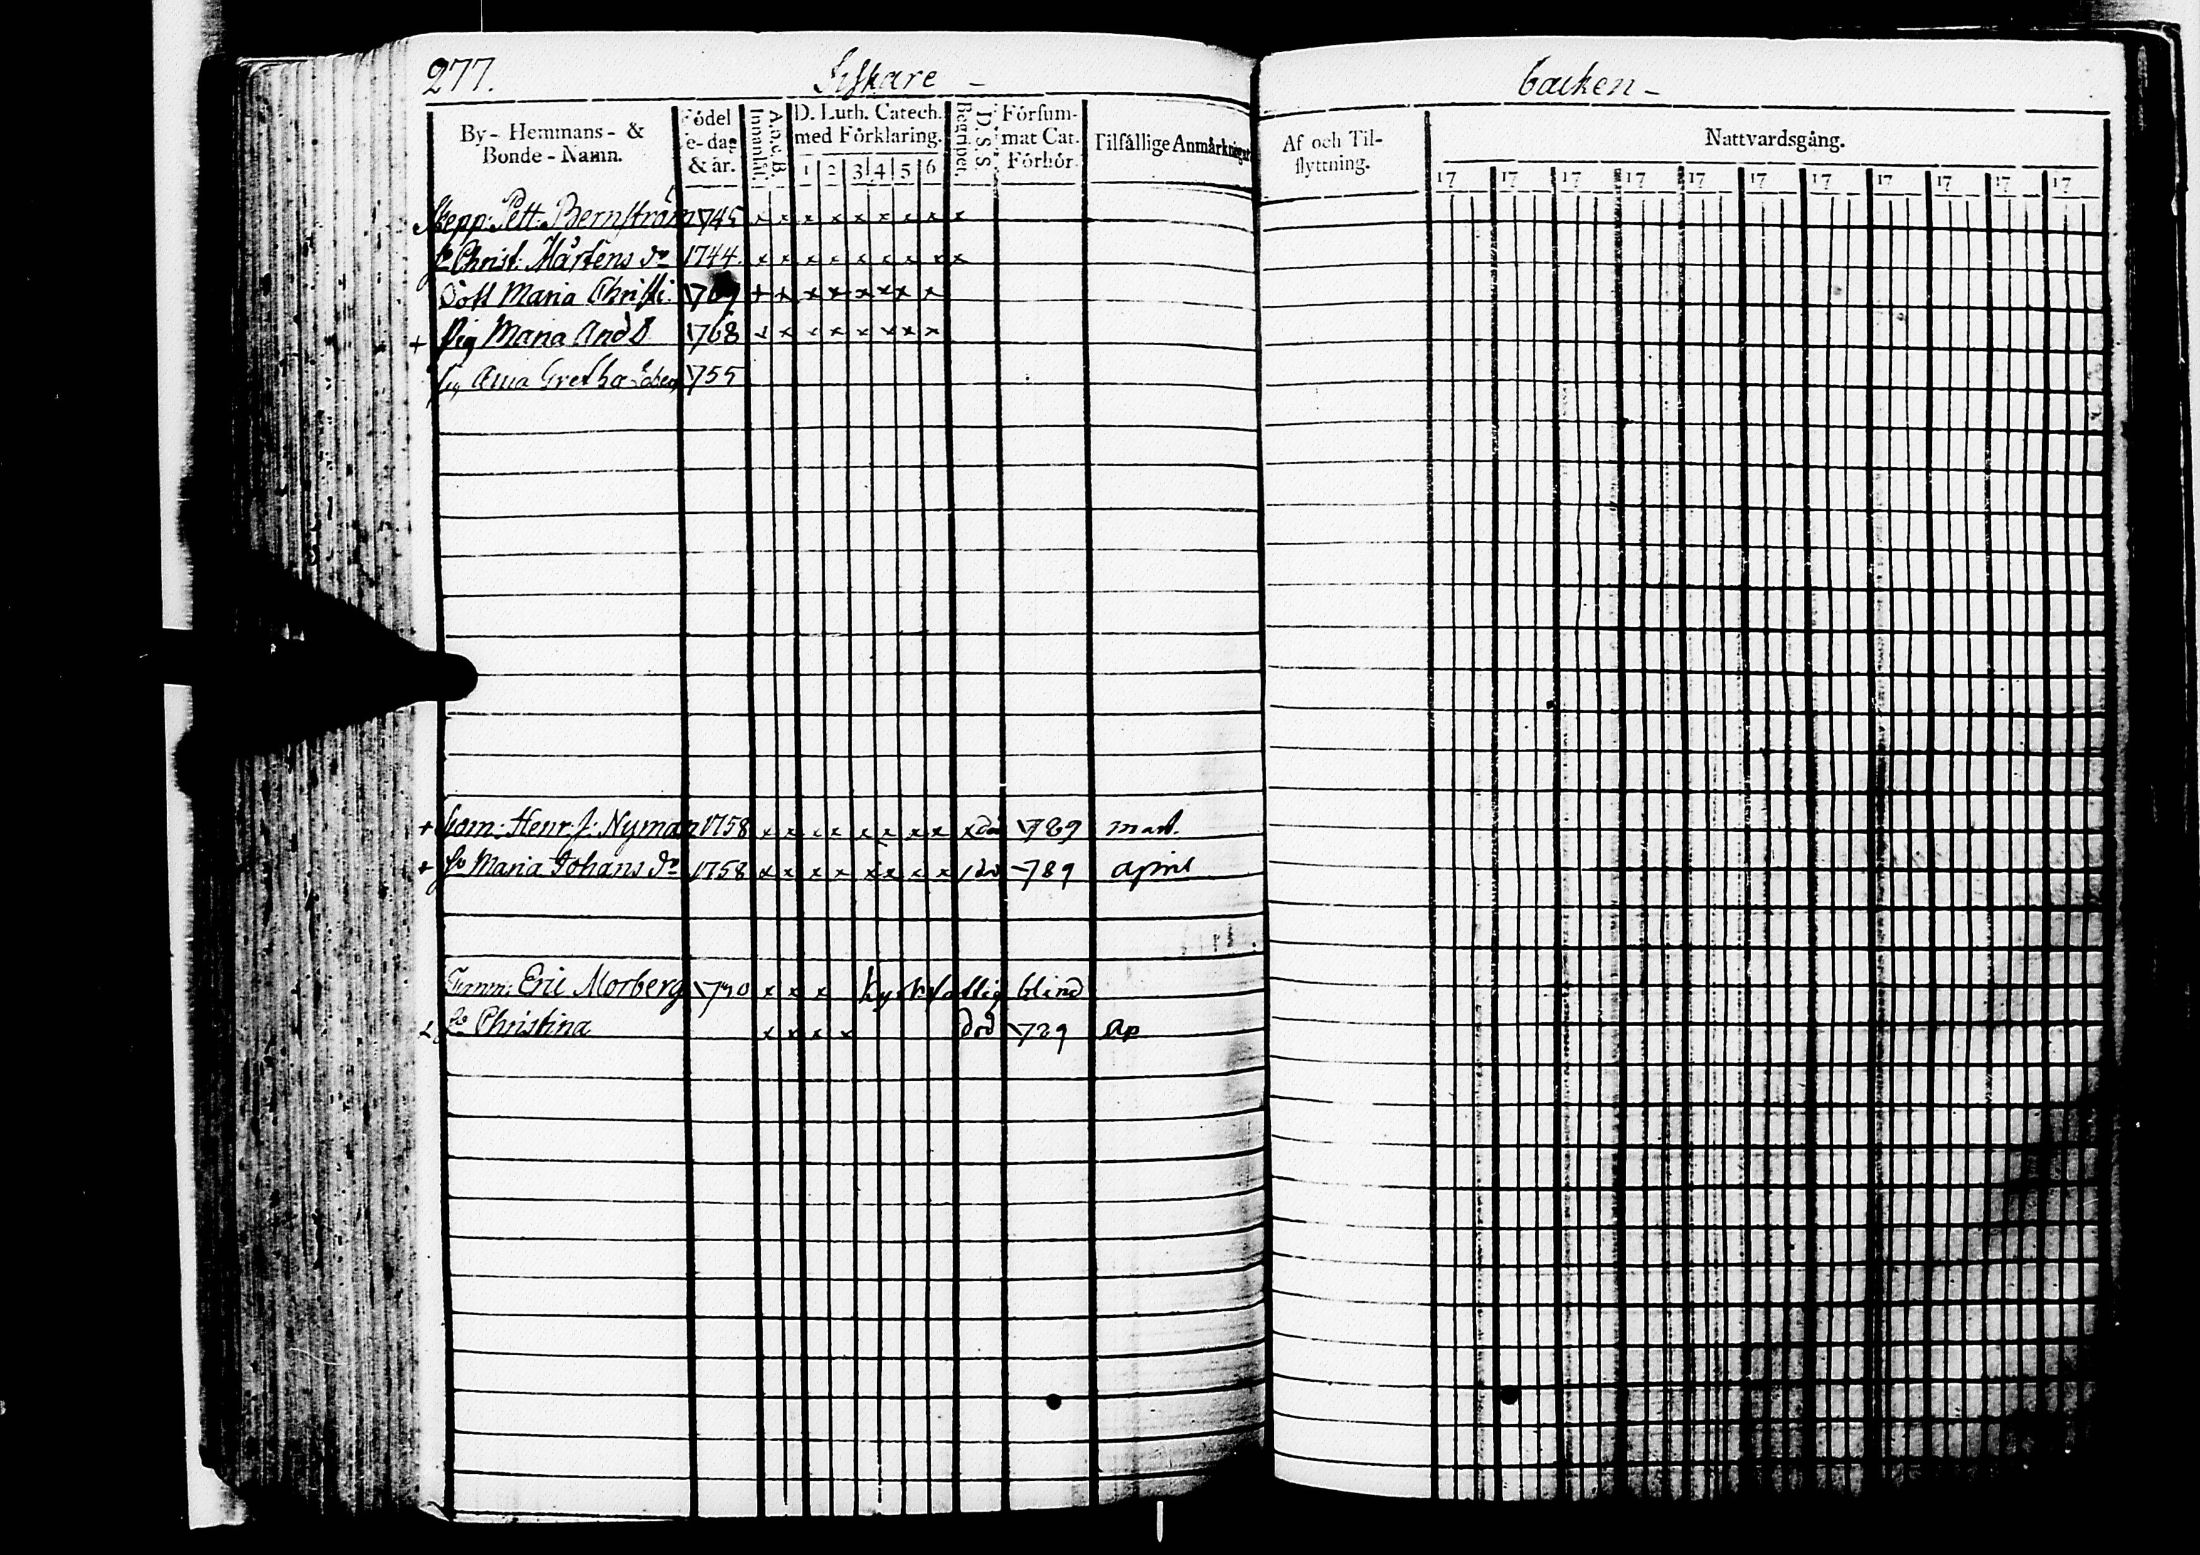 277. Fiskare - backen -
By- Hemmans- & Bonde-Namn. Födelse-dag & år. Innanläs. A.b.c.B. D. Luth. Catech. med Förklaring. 1 2 3 4 5 6 Begripet. D.S.S. Försummat Cat. Förhör. Tilfällige Anmärkningar Af och Tilflyttning. Nattvardsgång.
17 17 17 17 17 17 17 17 17 17 17
Skepp: Pett: Bernström 1745 x x x x x x x x x
h Christ: Mårtens dr 1744 x x x x x x x x x
Dott Maria Christi: 1769 + x x x x x x x
+ Pig Maria And D 1768 x x x x x x x x
Anna Gretha 1755
+ Henr. J: Nyman 1758 x x x x x x x x x död 1789 mart.
+ h Maria Johans dr 1758 x x x x x x x x 1789 april
Timm: Eric Morberg x x x blind
h Christina x x x x död 1789 ap